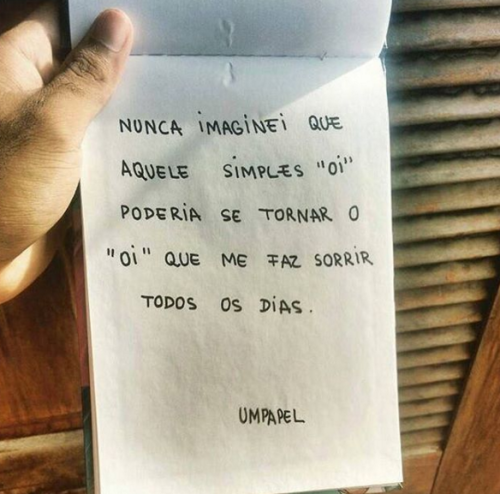 NUNCA iMAGiNEi QUE
AQUELE SiMPLES "Oi"
PODERiA SE TORNAR O
"Oi" QUE ME FAZ SORRIR
TODOS OS DiAS.
UMPAPEL